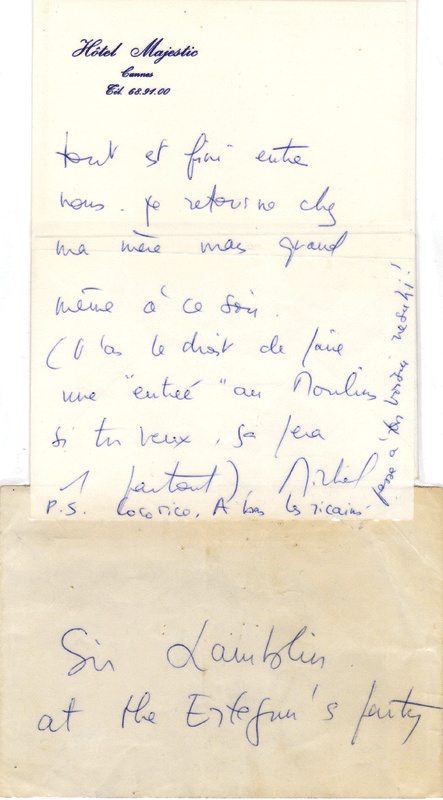 Hôtel Majestic
Cannes
Tél. 68.91.00
tout est fini entre
nous. je retourne chez
ma mère mais quand
même à ce soir.
(t'as le droit de faire
une "entrée" au Moulin
si tu veux, ça fera
1 partout) Michel
P.S. Cocorico. A bas les ricains.
passe à ton voisin
Sir Lamblin
at the Ertegun's party